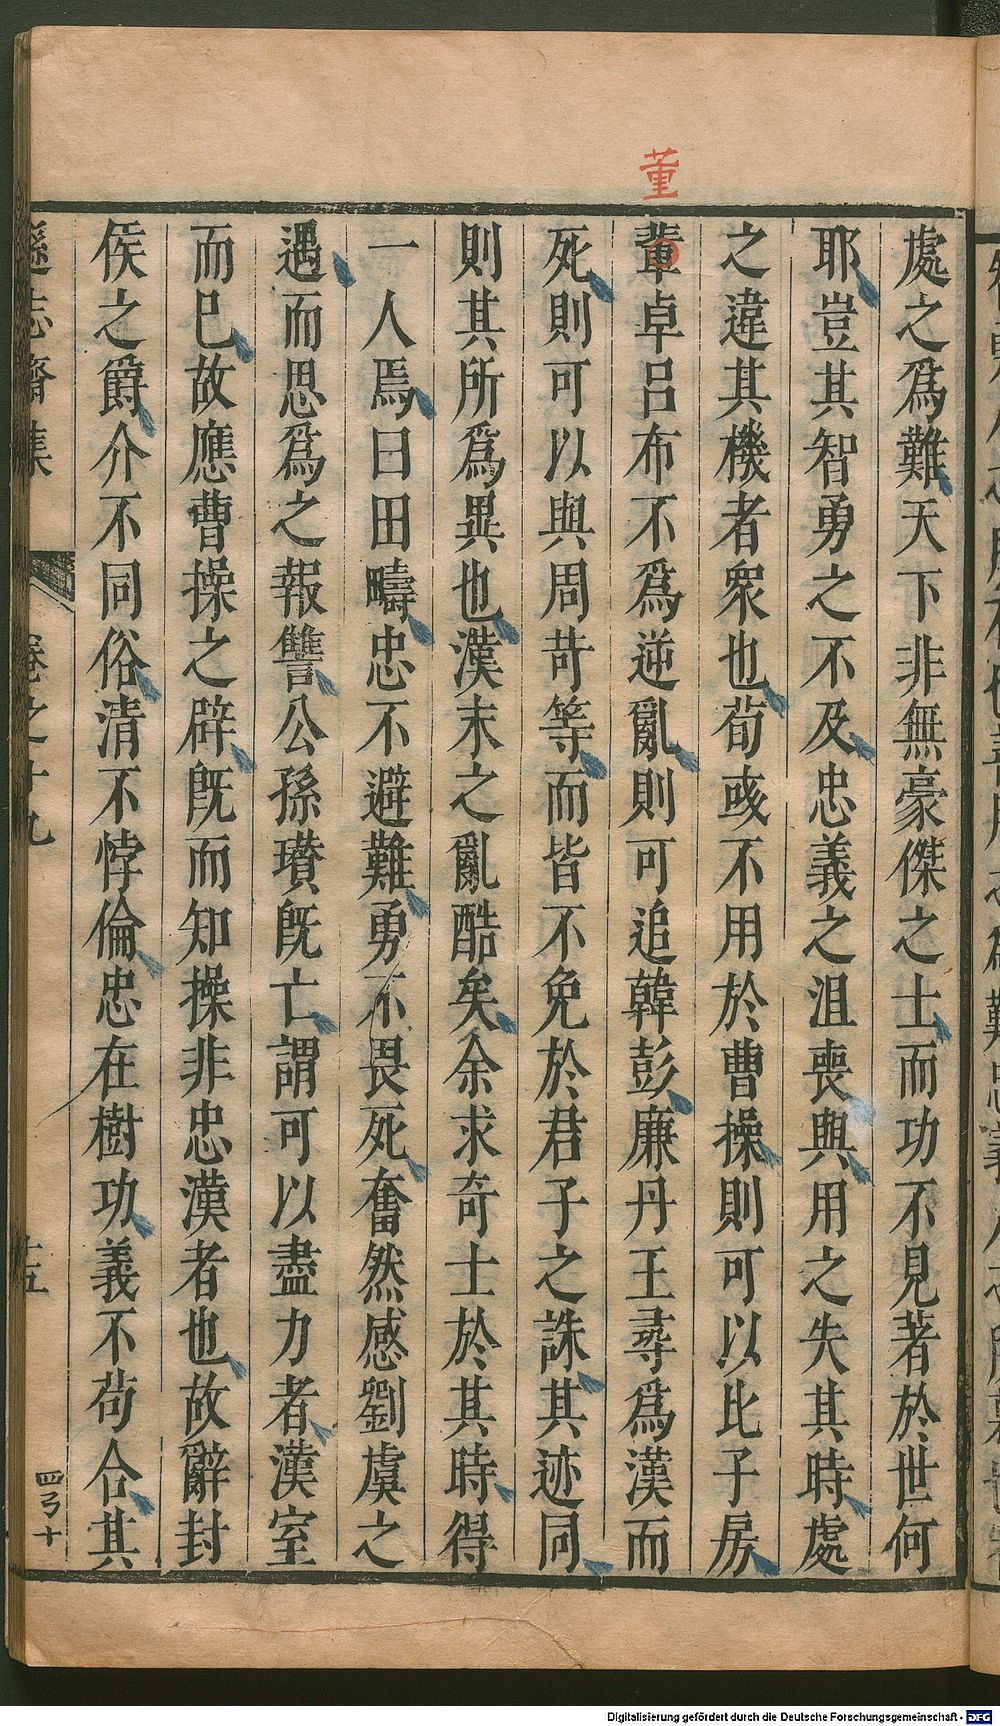 董
處之爲難天下非無豪傑之士而功不見著於世何
耶豈其智勇之不及忠義之沮喪與用之失其時處
之違其機者衆也荀彧不用於曹操則可以比子房
輩卓呂布不爲逆亂則可追韓彭廉丹王尋爲漢而
死則可以與周苛等而皆不免於君子之誅其迹同
則其所爲異也漢末之亂酷矣余求奇士於其時得
一人焉曰田疇忠不避難勇不畏死奮然感劉虞之
遇而思爲之報讐公孫瓚旣亡謂可以盡力者漢室
而巳故應曹操之辟旣而知操非忠漢者也故辭封
侯之爵介不同俗清不悖倫忠在樹功義不苟合其
遜志齋集
卷之十九
十五
四弓十
Digitalisierung gefördert durch die Deutsche Forschungsgemeinschaft - DFG